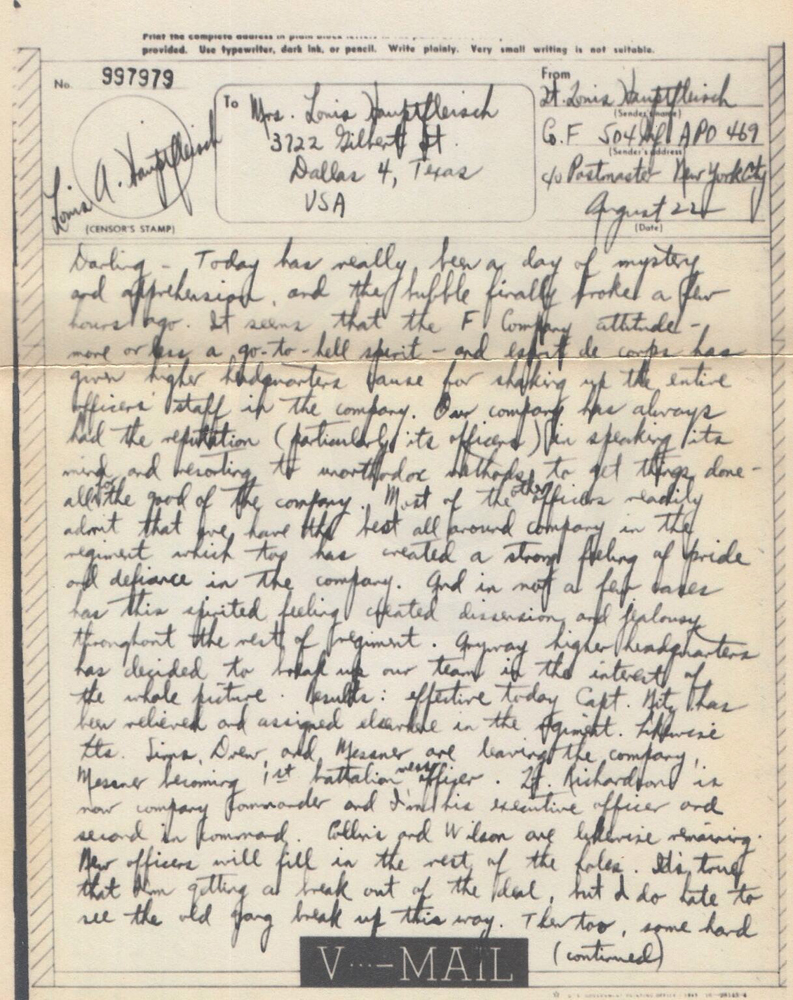 Print the complete address in plain block letters in the
provided. Use typewriter, dark ink, or pencil. Write plainly. Very small writing is not suitable.
No. 997979
(CENSOR'S STAMP)
Louis A. Hauptfleisch
To Mrs. Louis Hauptfleisch
3722 Gilbert St.
Dallas 4, Texas
USA
From
Lt. Louis Hauptfleisch
(Sender's name)
Co. F 504 APO 469
(Sender's address)
c/o Postmaster New York City
August 22
(Date)
Darling - Today has really been a day of mystery
and apprehension, and the bubble finally broke a few
hours ago. It seems that the F Company attitude -
more or less a go-to-hell spirit - and esprit de corps has
given higher headquarters cause for shaking up the entire
officers' staff in the company. Our company has always
had the reputation (particularly its officers) in speaking its
mind and resorting to unorthodox methods to get things done -
all for the good of the company. Most of the other officers readily
admit that we have the best all around company in the
regiment which too has created a strong feeling of pride
and defiance in the company. And in not a few cases
has this spirited feeling created dissension and jealousy
throughout the rest of regiment. Anyway higher headquarters
has decided to break up our team in the interest of
the whole picture. Results: effective today Capt. has
been relieved and assigned elsewhere in the regiment. Likewise
Lts. Sims, Drew, and Messner are leaving the company,
Messner becoming 1st battalion mess officer. Lt. Richardson is
now company commander and I'm his executive officer and
second in command. Collins and Wilson are likewise remaining.
New officers will fill in the rest of the holes. It's true
that I'm getting a break out of the deal, but I do hate to
see the old gang break up this way. Then too, some hard
(continued)
V···-MAIL